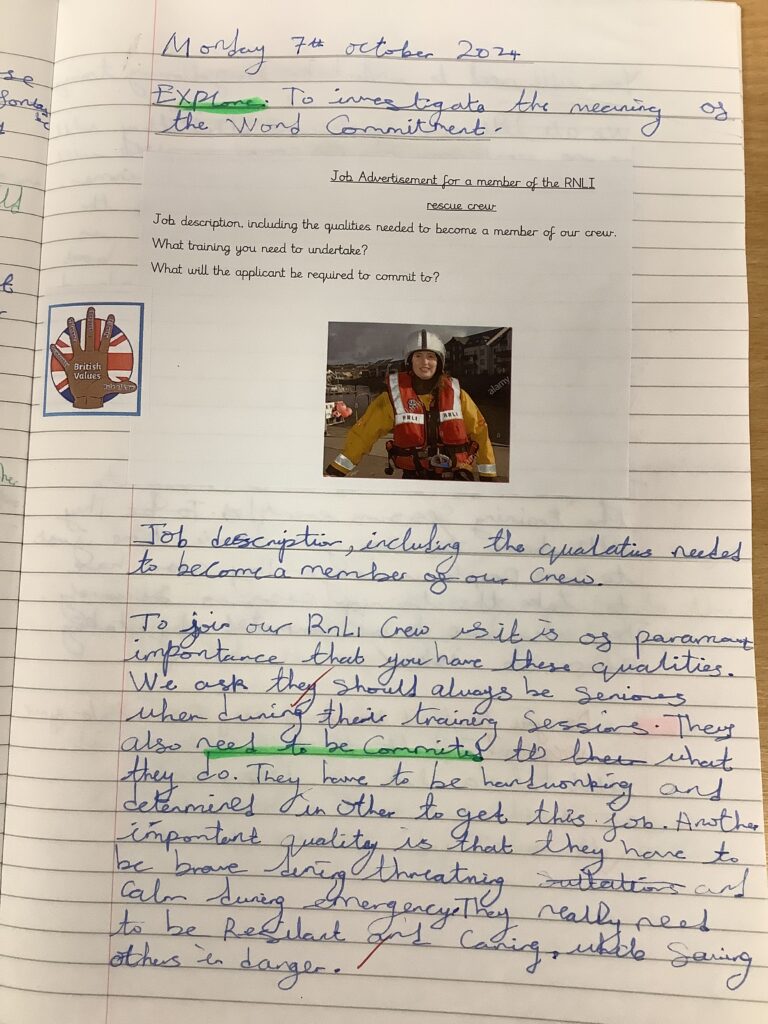 se
Monday 7th october 2024
EXPlore. To investigate the meaning of
the Word Commitment.
Job Advertisement for a member of the RNLI
rescue crew
Job description, including the qualities needed to become a member of our crew.
What training you need to undertake?
What will the applicant be required to commit to?
British
Values
alamy
RNLI RNLI
Job description, including the qualatius needed
to become a member of our Crew.
To join our RnLI Crew it is of paramout
importance that you have these qualities.
We ask they should always be serious
when during their training sessions. They
also need to be Commited to what
they do. They have to be hardworking and
determined in other to get this job. Another
important quality is that they have to
be brave during threatning and
Calm during emergency. They really need
to be Resilant and Caring, while Saving
others in danger.